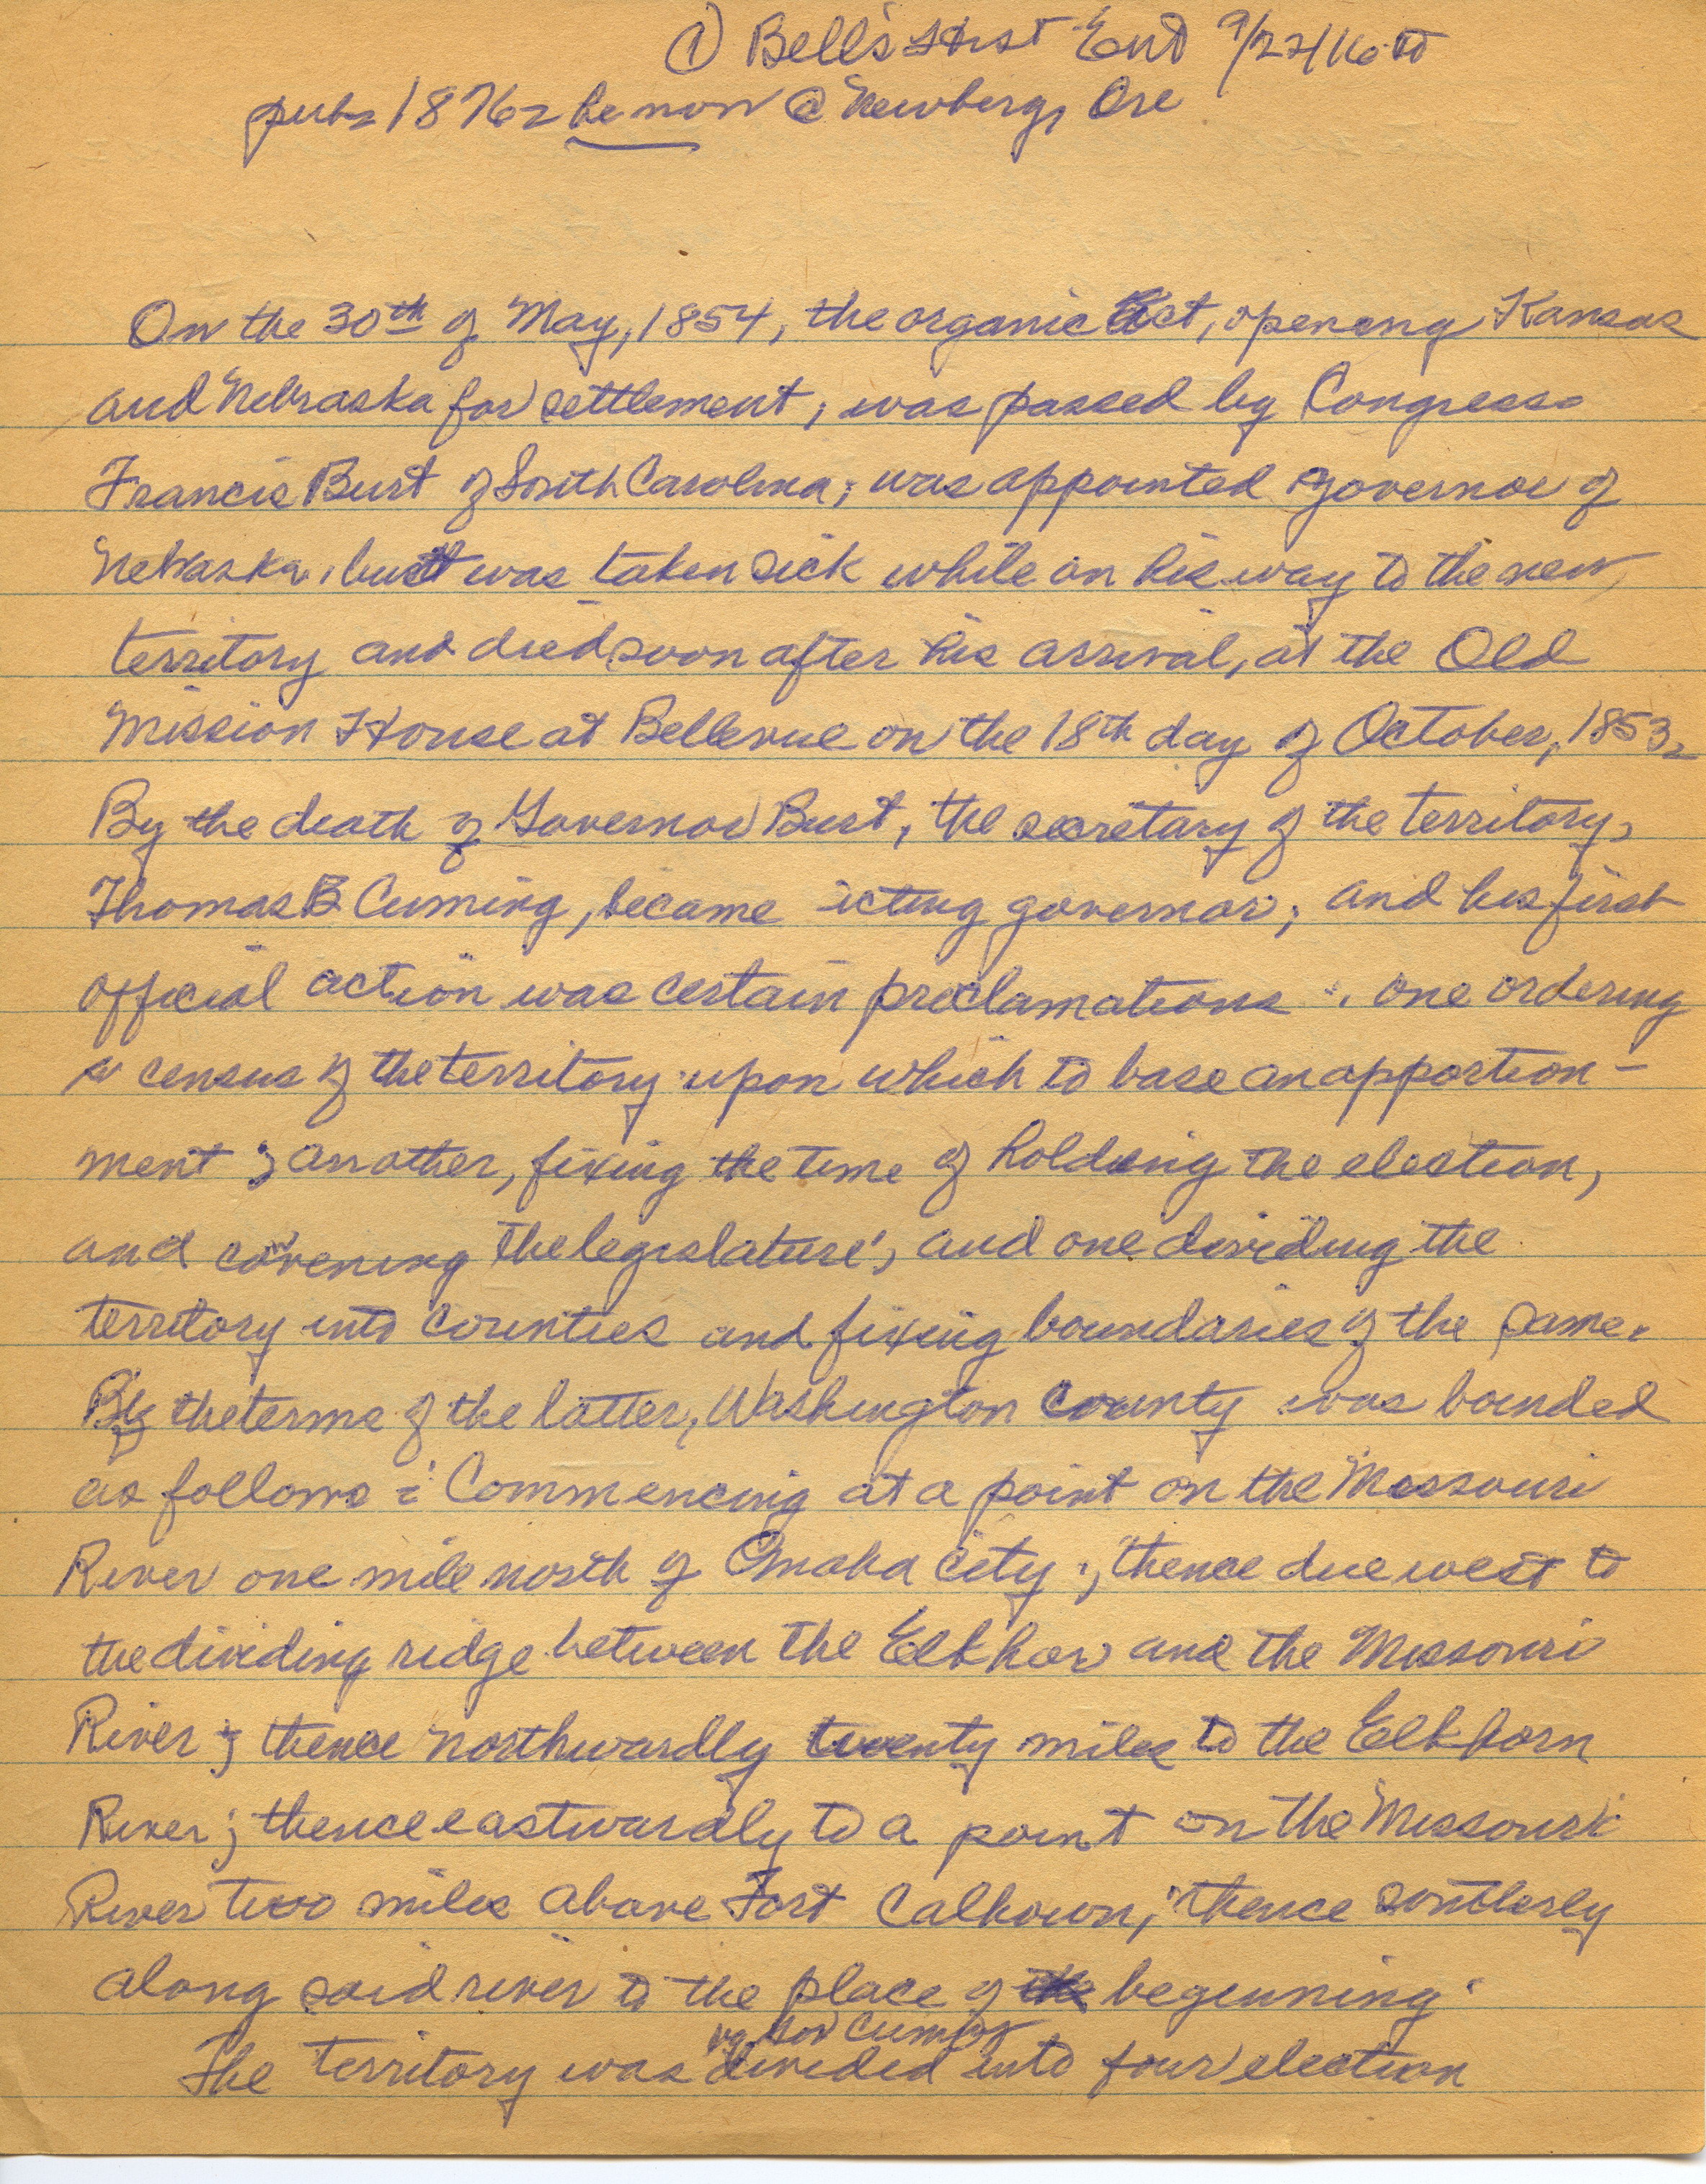 ① Bell's Hist Ent 9/27/16 to
pub 1876 - he now @ Newberg, Ore
On the 30th of May, 1854, the organic Act, opening Kansas
and Nebraska for settlement, was passed by Congress.
Francis Burt of South Carolina, was appointed governor of
Nebraska, but was taken sick while on his way to the new
territory and died soon after his arrival, at the Old
Mission House at Bellevue on the 18th day of October, 1853.
By the death of Governor Burt, the secretary of the territory,
Thomas B Cuming, became acting governor, and his first
official action was certain proclamations; one ordering
a census of the territory upon which to base an apportion-
ment; another, fixing the time of holding the election,
and convening the legislature; and one dividing the
territory into counties and fixing boundaries of the same.
By the terms of the latter, Washington County was bounded
as follows: Commencing at a point on the Missouri
River one mile north of Omaha City; thence due west to
the dividing ridge between the Elkhor and the Missouri
River; thence northwardly twenty miles to the Elkhorn
River; thence eastwardly to a point on the Missouri
River two miles above Fort Calhoun; thence southerly
along said river to the place of the beginning.
by Gov Cuming
The territory was divided into four election